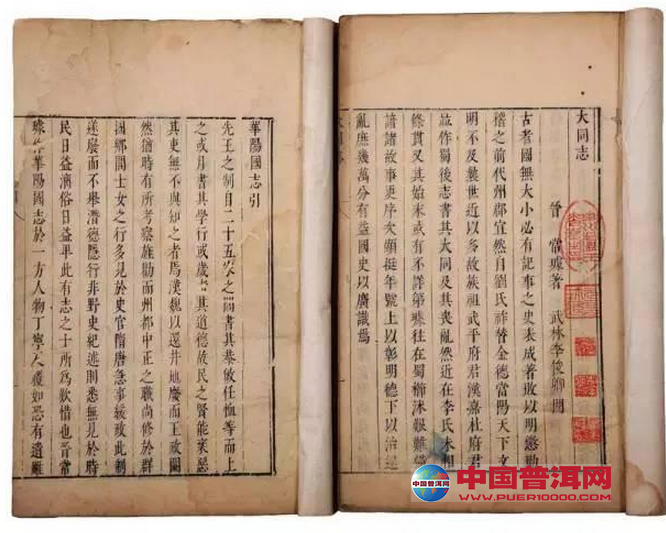 大同志
晉 常璩著 武林李俊卿閱
古者國無大小必有記事之史表成著敗以明懲勸
稽之前代州郡宜然自劉氏祚替金德當陽天下文
明不及曩世近以多故族祖武平府君漢嘉杜府君
並作蜀後志書其大同及其喪亂然近在李氏未相
條貫又其始末或有不詳第璩往在蜀櫛沐艱難
諳諸故事更序次顯挺年號上以彰明德下以治
亂庶幾萬分有益國史以廣識焉
華陽國志引
先王之制自二十五家之閭書其恭敏任恤等而上
之或月書其學行或歲考其道德故民之賢能
其吏無不與知之者焉漢魏以還井地廢而王政闕
然猶時有所考察旌勸而州都中正之職尚修於
國鄉閭士女之行多見於史官隋唐急事緩政此制
遂廢而不舉潛德隱行非野史紀述則悉無見於時
民日益漓俗日益卑此有志之士所為歎惜也晉常
璩華陽國志於一方人物丁寧反覆如恐有遺
中国普洱网
WWW.PUER10000.COM